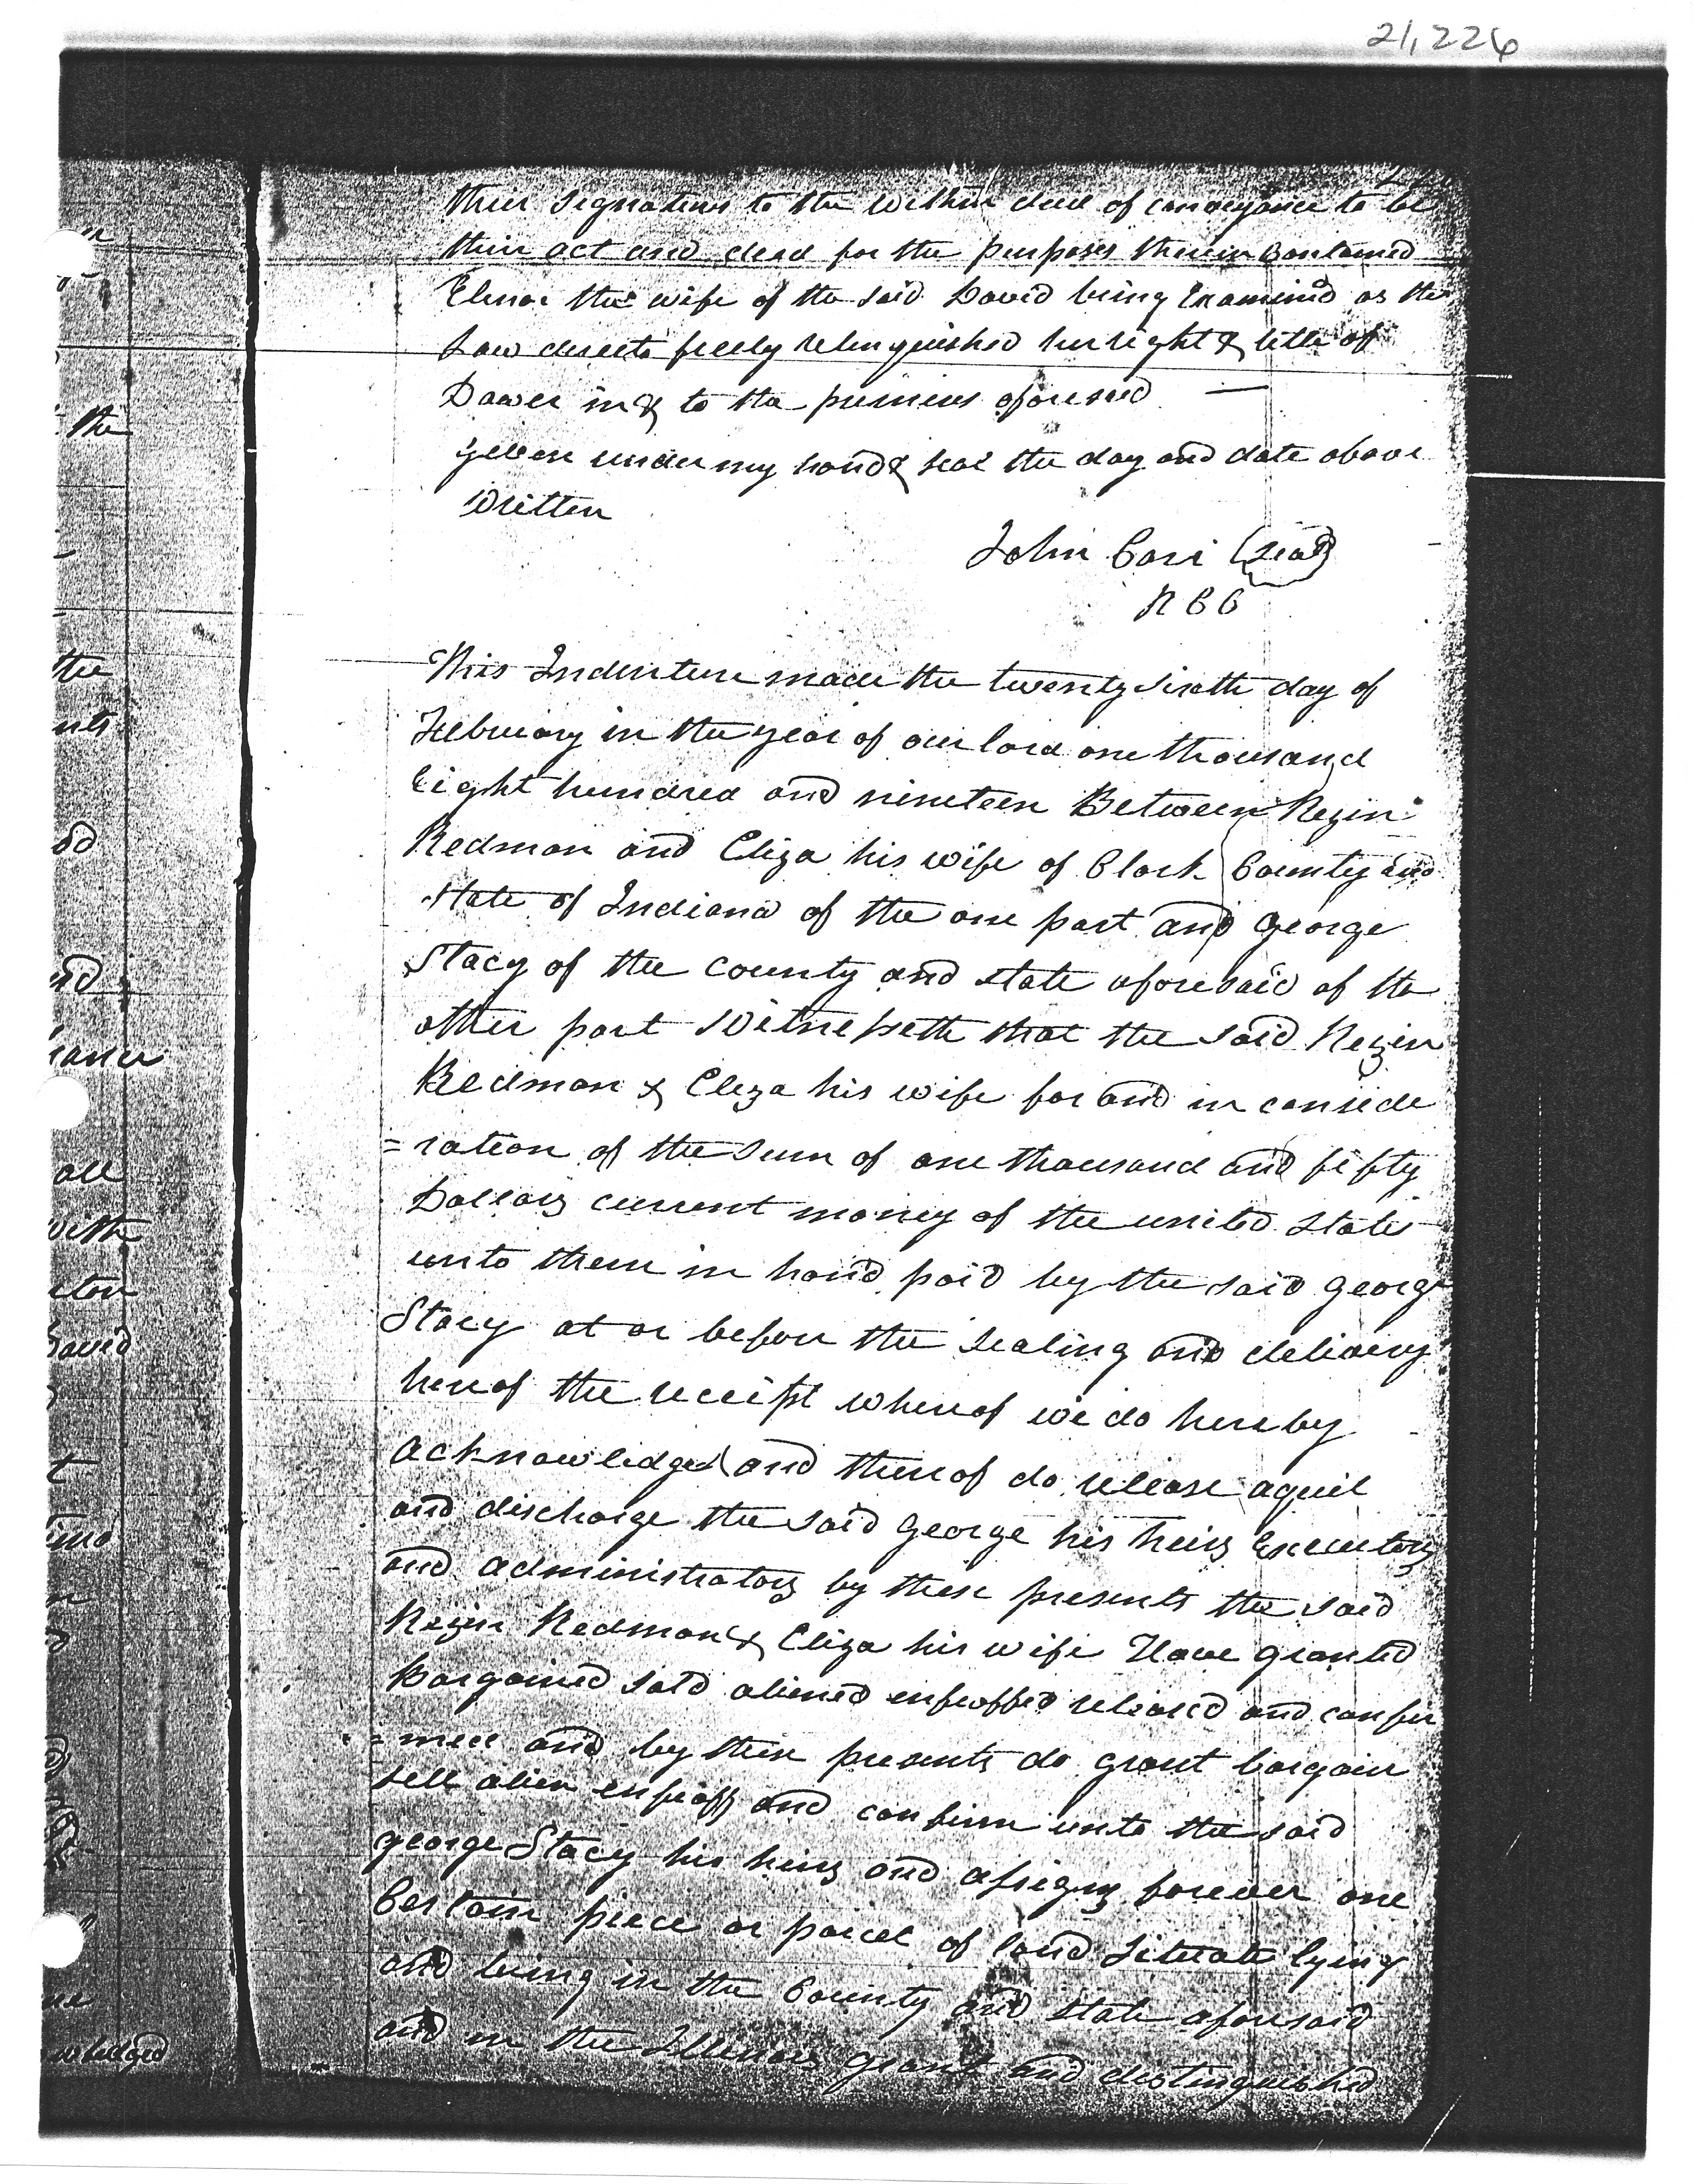 21,226
their signatures to the within deed of conveyance to be
their act and deed for the purposes therein Contained
Elenor the wife of the said David being Examined as the
Law directs freely relinquished her right & title of
Dower in & to the premises aforesaid —
given under my hand & seal the day and date above
written
John Carr (seal)
R C C
This Indenture made the twenty sixth day of
February in the year of our lord one thousand
Eight hundred and nineteen Between Rezin
Redman and Eliza his wife of Clark County and
state of Indiana of the one part and George
Stacy of the county and state aforesaid of the
other part Witnesseth that the said Rezin
Redman & Eliza his wife for and in conside
=ration of the sum of one thousand and fifty
Dollars current money of the united states
unto them in hand paid by the said George
Stacy at or before the sealing and delivery
hereof the receipt whereof we do hereby
acknowledge and thereof do release aquit
and discharge the said George his heirs Executors
and administrators by these presents the said
Rezin Redman & Eliza his wife Have granted
Bargained sold aliened enfeoffed released and confir
=med and by these presents do grant bargain
sell alien enfeoff and confirm unto the said
george Stacy his heirs and assigns forever one
Certain piece or parcel of land situate lying
and being in the County and state aforesaid
and in the Illinois grant and distinguished
the
the
nts
all
with